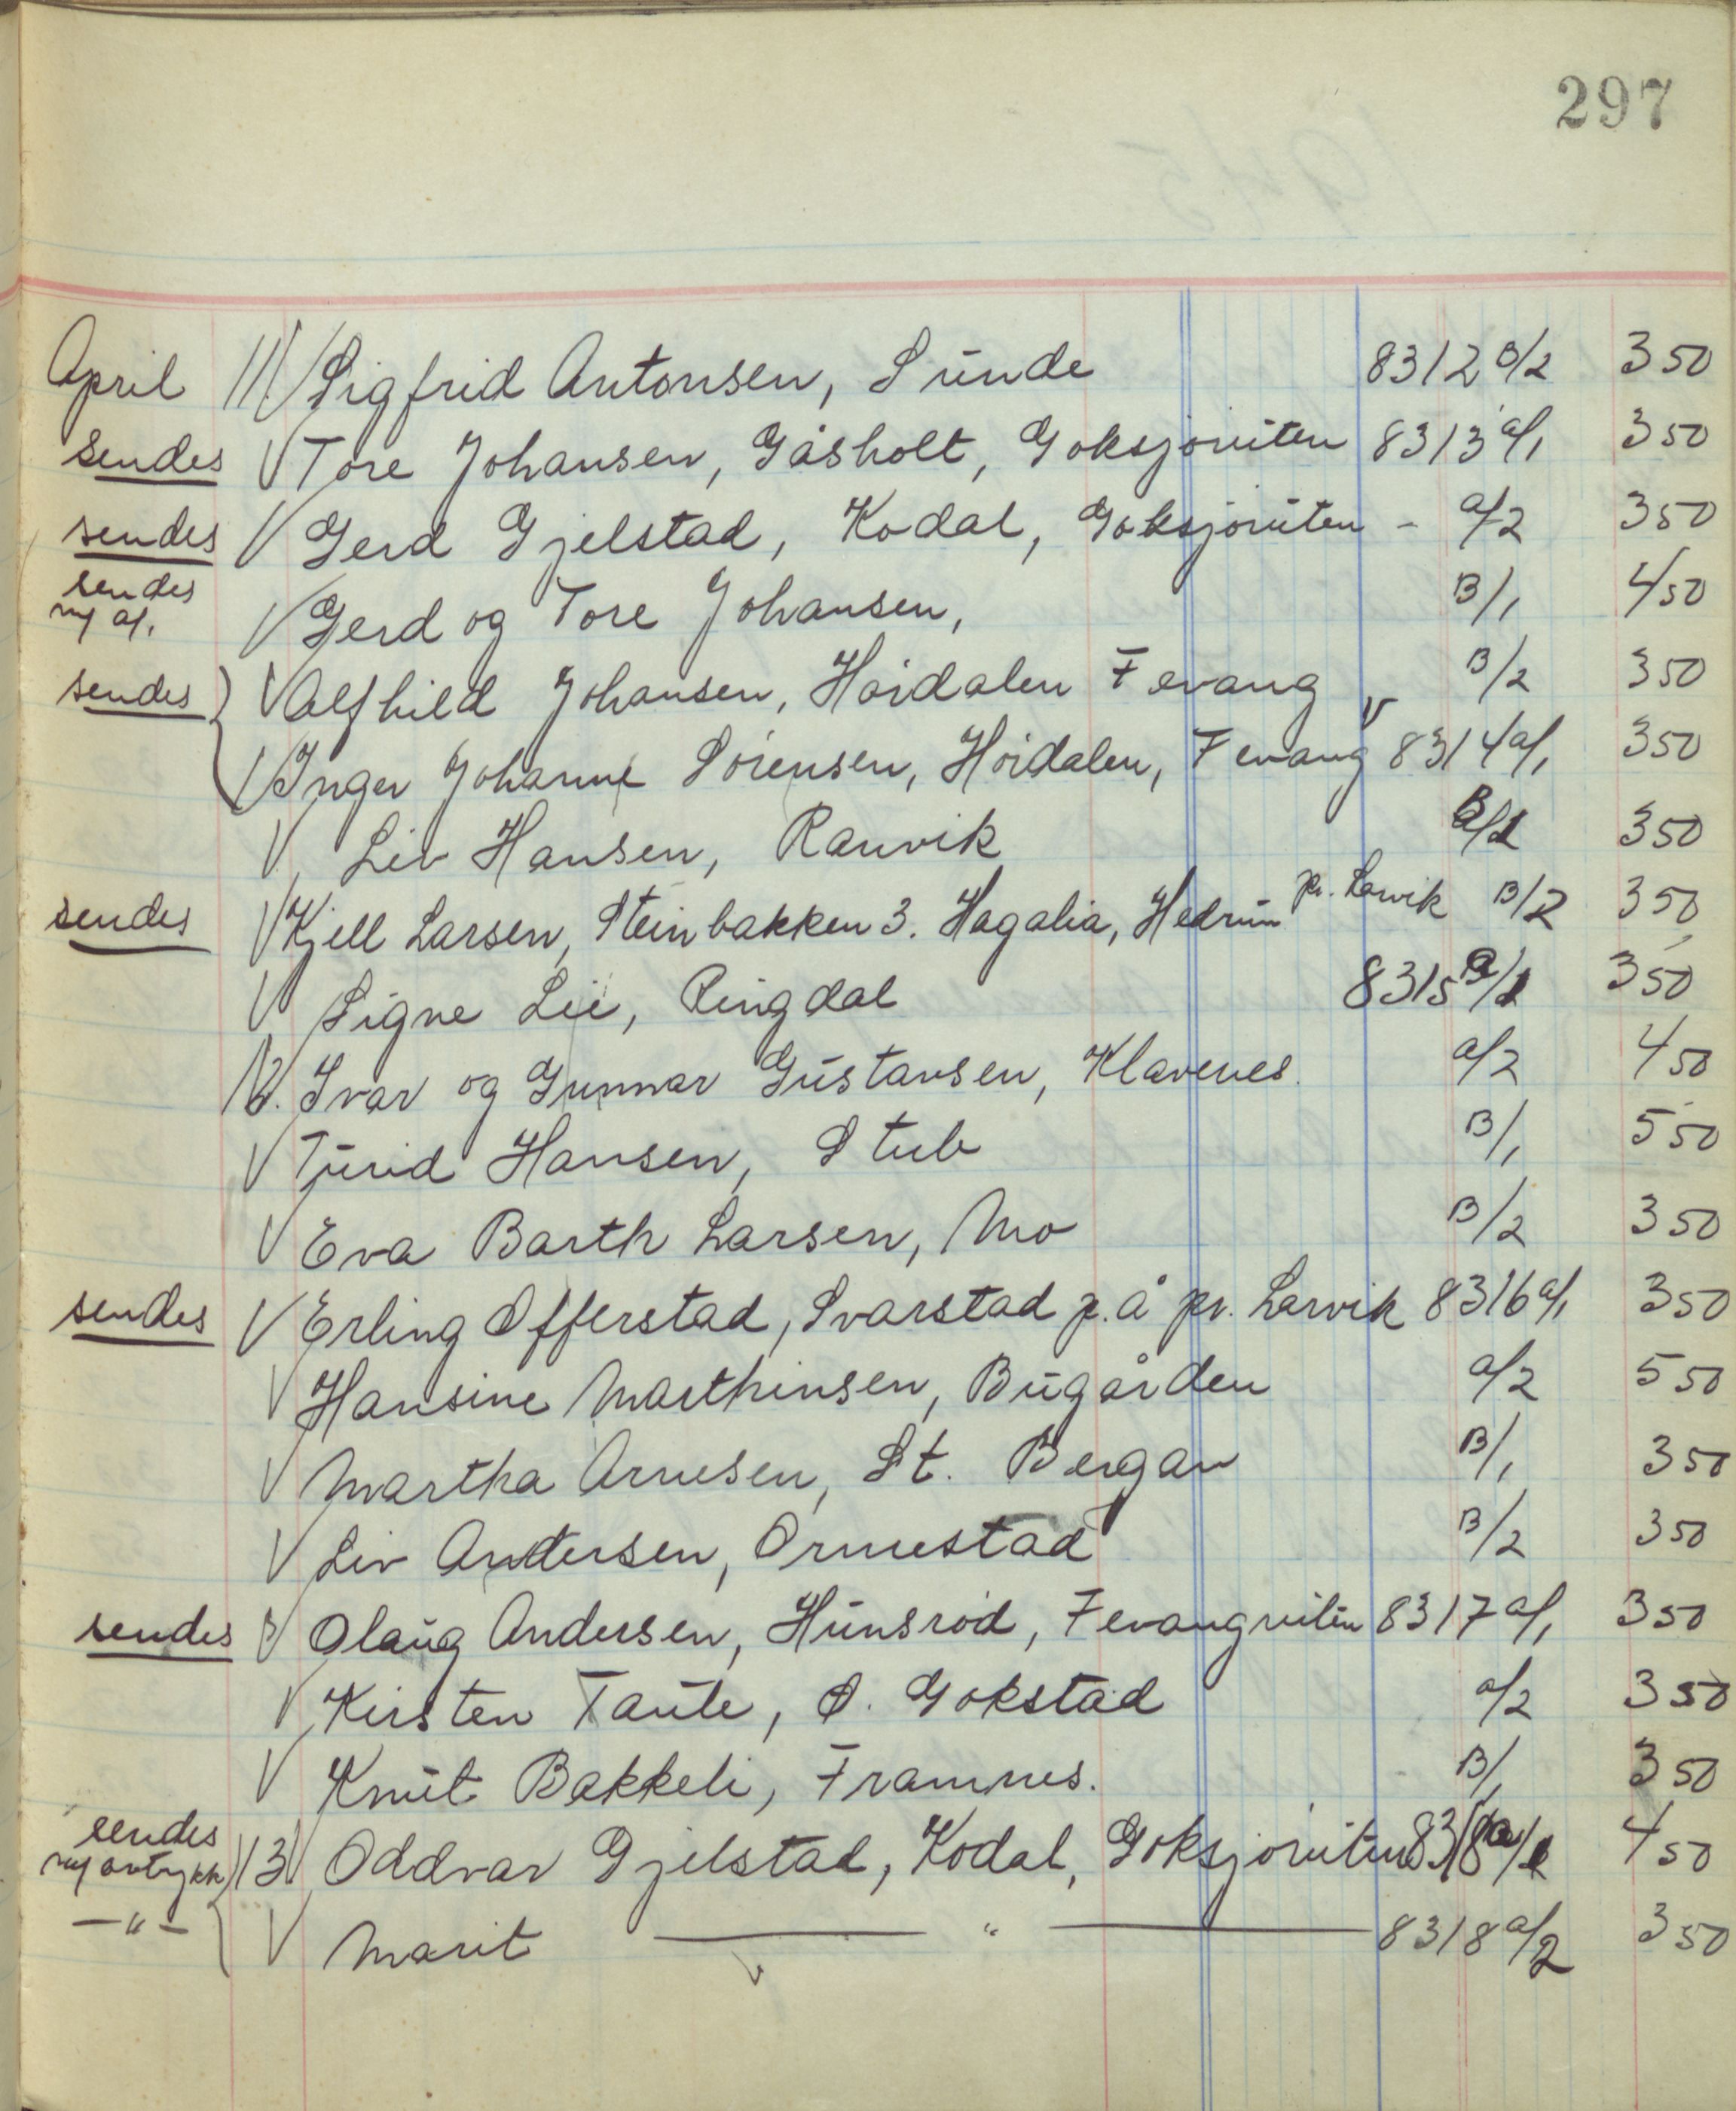 297
April 11 Sigfrid Antonsen, Sunde 8312 B/2 3 50
sendes Tore Johansen, Gåsholt, Goksjøruten 8313 a/1 3 50
sendes Gerd Gjelstad, Kodal, Goksjøruten - a/2 3 50
sendes
ny a/1 Gerd og Tore Johansen, B/1 4 50
sendes Alfhild Johansen, Høidalen Fevang B/2 3 50
Inger Johanne Sørensen, Høidalen, Fevang 8314 a/1 3 50
Liv Hansen, Ranvik B/1 3 50
sendes Kjell Larsen, Steinbakken 3. Hagalia, Hedrum pr. Larvik B/2 3 50
Signe Lie, Ringdal 8315 a/1 3 50
12. Ivar og Gunnar Gustavsen, Klavenes. a/2 4 50
Turid Hansen, Stub B/1 5 50
Eva Barth Larsen, Mo B/2 3 50
sendes Erling Offerstad, Svarstad p.å pr. Larvik 8316 a/1 3 50
Hansine Marthinsen, Bugården a/2 5 50
Martha Arnesen, St. Bergan B/1 3 50
Liv Andersen, Ormestad B/2 3 50
sendes Olaug Andersen, Hunsrød, Fevangruten 8317 a/1 3 50
Kirsten Taule, Ø. Gokstad a/2 3 50
Knut Bakkeli, Framnes. B/1 3 50
sendes
ny avtrykk 13 Oddvar Gjelstad, Kodal, Goksjøruten 8318 a/1 4 50
— " — Marit — " — 8318 a/2 3 50